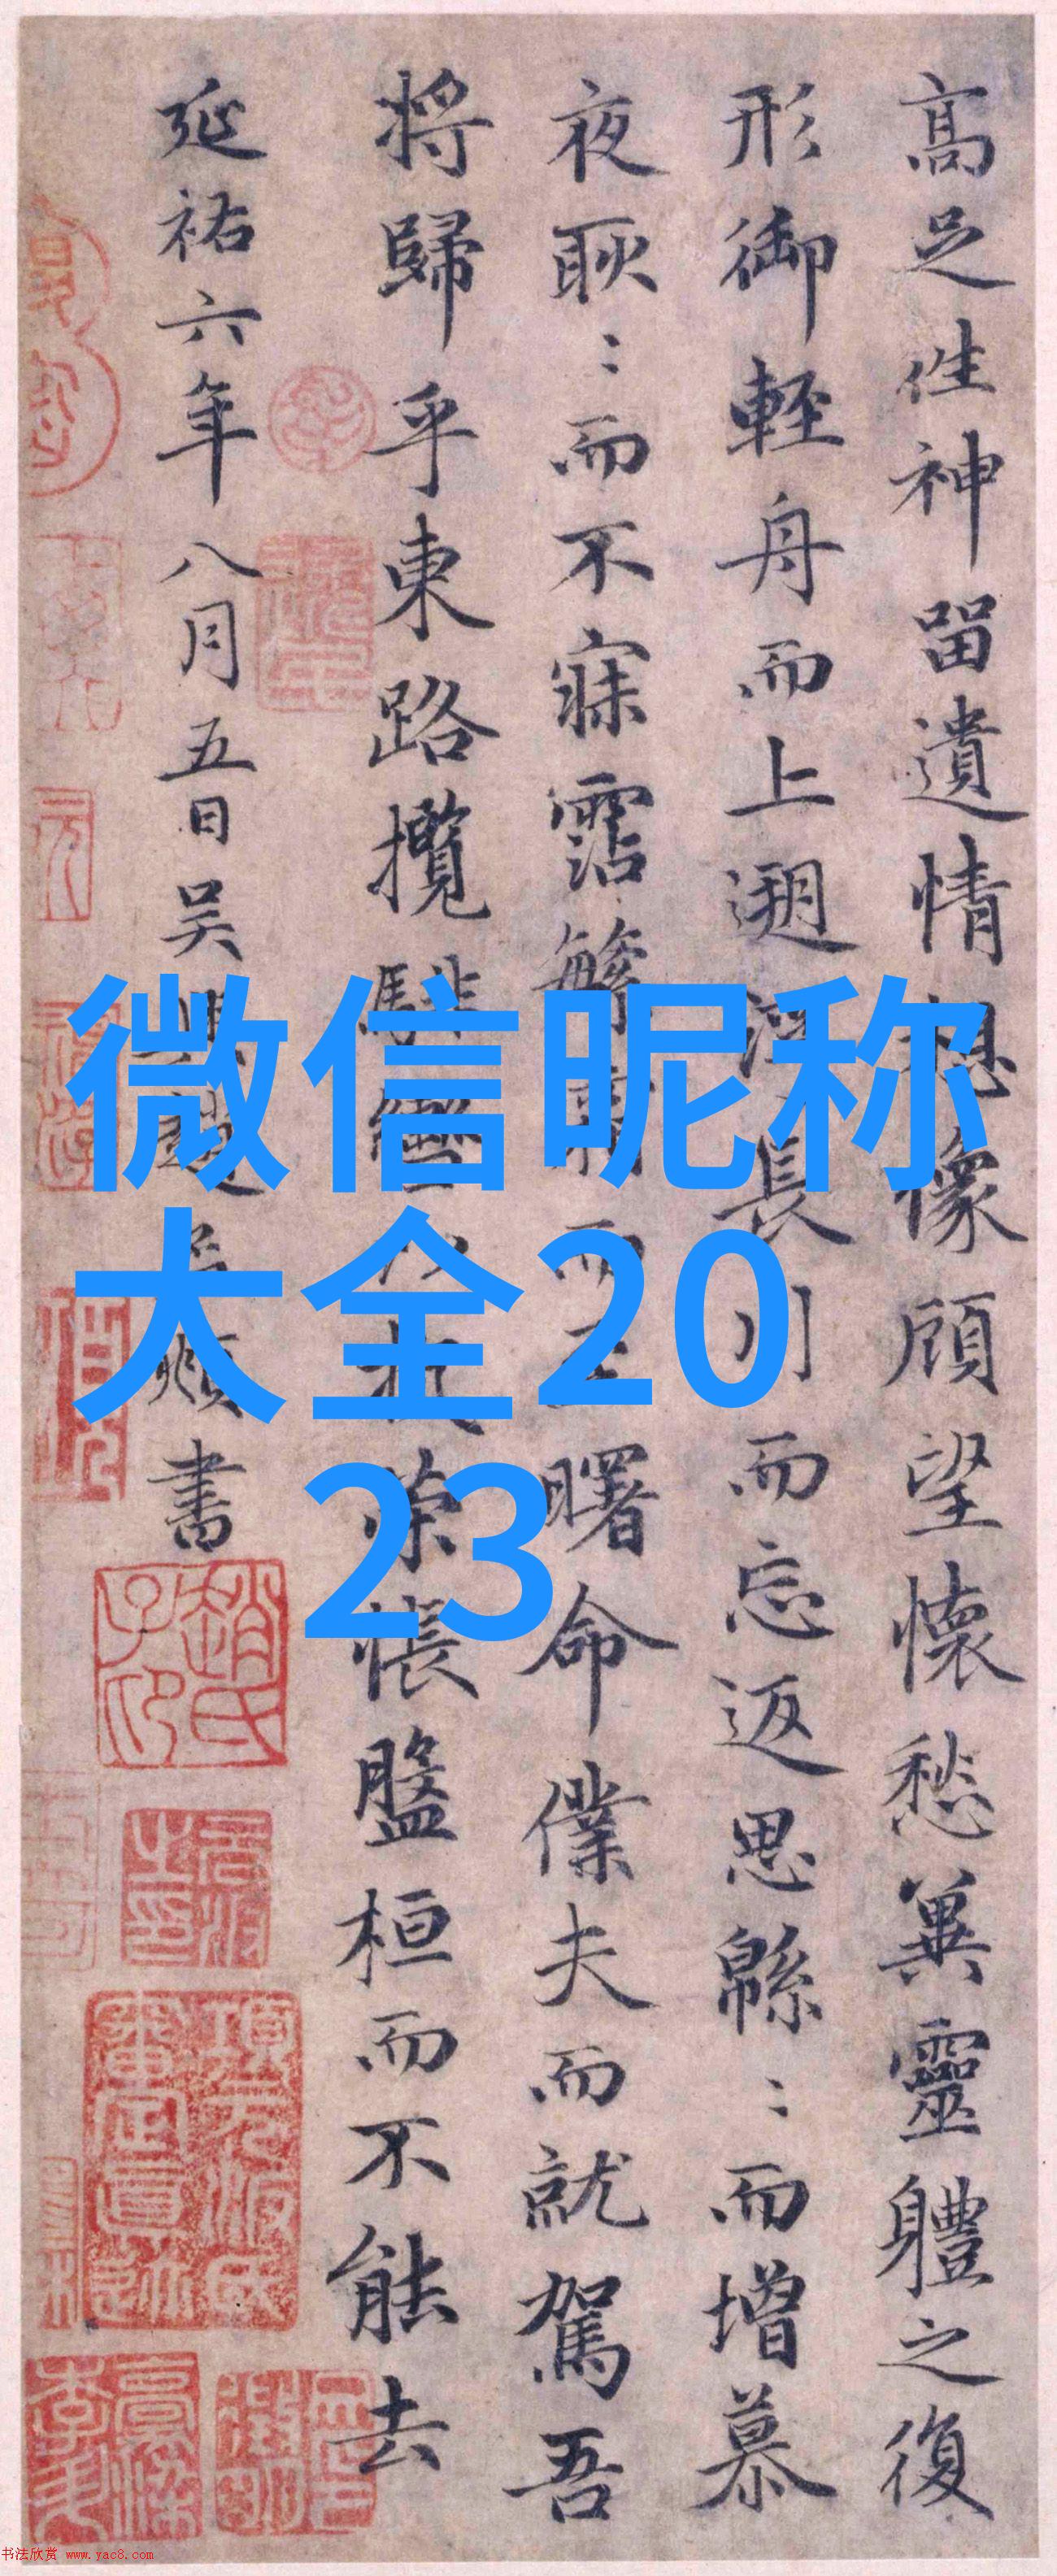 高足往神留遺情想像顧望懷愁兾靈體之復
形御輕舟而上遡浮長川而忘返思緜〻而增慕
夜耿〻而不寐霑繁霜而至曙命僕夫而就駕吾
將歸乎東路攬騑轡以抗策悵盤桓而不能去
延祐六年八月五日吳興趙孟頫書
微信昵称
大全20
23
趙氏子昂
項元汴氏審定真跡
书法欣赏 www.yac8.com